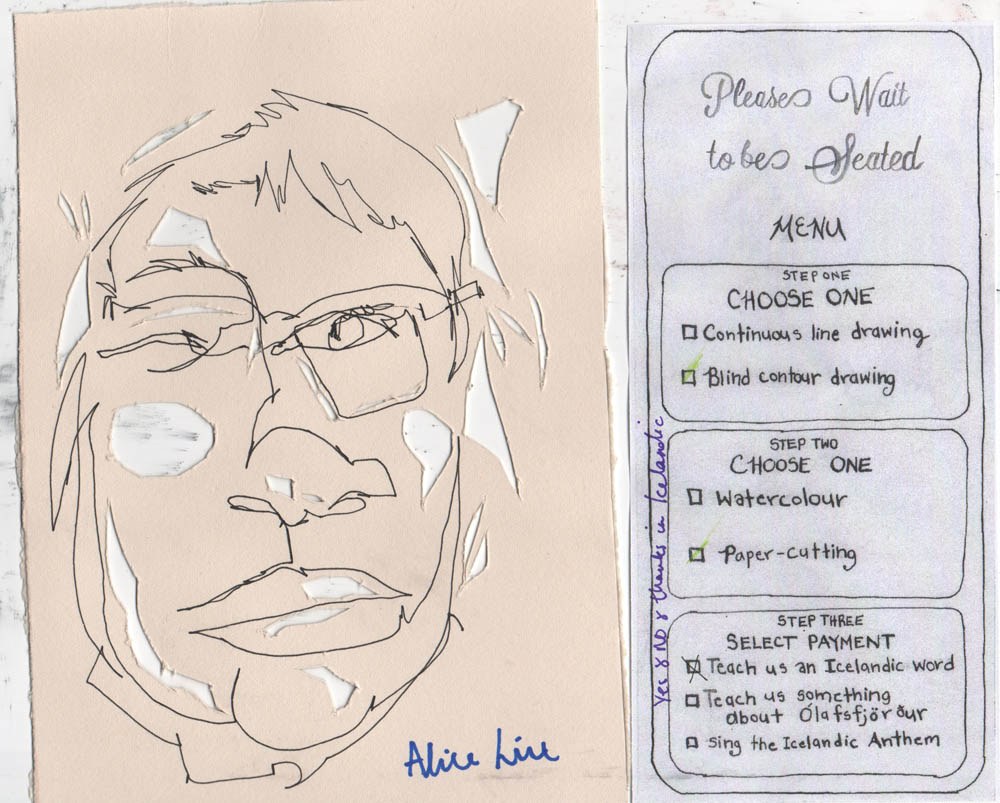 Please Wait
to be Seated
MENU
STEP ONE
CHOOSE ONE
Continuous line drawing
Blind contour drawing
STEP TWO
CHOOSE ONE
Watercolour
Paper-cutting
STEP THREE
SELECT PAYMENT
Teach us an Icelandic word
Teach us something
about Ólafsfjörður
Sing the Icelandic Anthem
Yes & NO & thanks in Icelandic
Alice